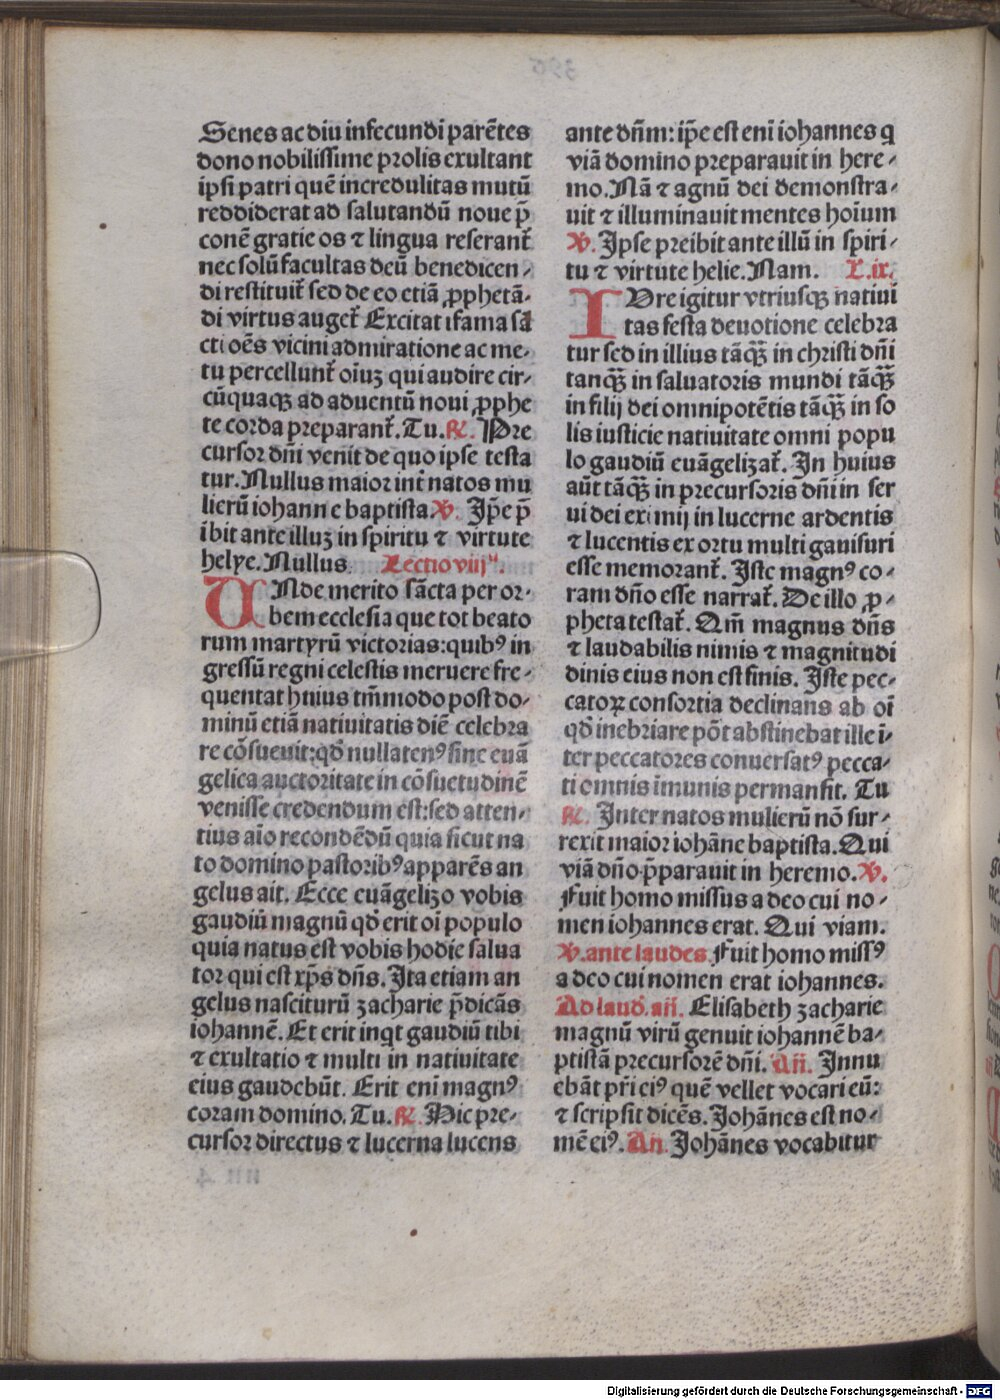 Senes ac diu infecundi parētes
dono nobilissime prolis exultant
ipsi patri quē incredulitas mutū
reddiderat ad salutandū noue p̄
conē gratie os ⁊ lingua reserant᷑
nec solū facultas deū benedicen-
di restituit᷑ sed de eo etiā ꝓphetā-
di virtus auget᷑ Excitat ⁊ fama sā
cti oēs vicini admiratione ac me-
tu percellunt᷑ oīuꝫ qui audire cir-
cūquaqꝫ ad aduentū noui ꝓphe
te corda preparant᷑. Tu. ℟. Pre
cursor dn̄i venit de quo ipse testa
tur. Nullus maior int᷑ natos mu
lierū iohanne baptista. ℣. Ip̄e p̄
ibit ante illuꝫ in spiritu ⁊ virtute
helye. Nullus. Lectio viijᵃ.
UNde merito sācta per or-
bem ecclesia que tot beato
rum martyrū victorias: quibꝰ in
gressū regni celestis meruere fre-
quentat huius tm̄modo post do-
minū etiā natiuitatis diē celebra
re cōsueuit: qd̄ nullatenꝰ sine euā
gelica auctoritate in cōsuetudinē
venisse credendum est: sed atten-
tius aīo recondēdū quia sicut na
to domino pastoribꝰ apparēs an
gelus ait. Ecce euāgelizo vobis
gaudiū magnū qd̄ erit oī populo
quia natus est vobis hodie salua
tor qui est xp̄s dn̄s. Ita etiam an
gelus nasciturū zacharie p̄dicās
iohannē. Et erit inqt gaudiū tibi
⁊ exultatio ⁊ multi in natiuitate
eius gaudebūt. Erit enī magnꝰ
coram domino. Tu. ℟. Hic pre-
cursor directus ⁊ lucerna lucens
ante dn̄m: ip̄e est enī iohannes q
viā domino preparauit in here-
mo. Nā ⁊ agnū dei demonstra-
uit ⁊ illuminauit mentes hoīum
℣. Ipse preibit ante illū in spiri-
tu ⁊ virtute helie. Nam. L. ix.
IUre igitur vtriusqꝫ natiui
tas festa deuotione celebra
tur sed in illius tāqꝫ̄ in christi dn̄i
tanqꝫ̄ in saluatoris mundi tāqꝫ̄
in filij dei omnipotētis tāqꝫ̄ in so
lis iusticie natiuitate omni popu
lo gaudiū euāgelizat᷑. In huius
aūt tāqꝫ̄ in precursoris dn̄i in ser
ui dei eximij in lucerne ardentis
⁊ lucentis ex ortu multi gauisuri
esse memorant᷑. Iste magnꝰ co-
ram dn̄o esse narrat᷑. De illo ꝓ-
pheta testat᷑. Qm̄ magnus dn̄s
⁊ laudabilis nimis ⁊ magnitudi
dinis eius non est finis. Iste pec-
catoꝝ consortia declinans ab oī
qd̄ inebriare pōt abstinebat ille ī-
ter peccatores conuersatꝰ pecca-
ti omnis imunis permansit. Tu
℟. Inter natos mulierū nō sur-
rexit maior iohāne baptista. Qui
viā dn̄o p̄parauit in heremo. ℣.
Fuit homo missus a deo cui no-
men iohannes erat. Qui viam.
℣. ante laudes. Fuit homo missꝰ
a deo cui nomen erat iohannes.
Ad laud. an̄. Elisabeth zacharie
magnū virū genuit iohannē ba-
ptistā precursorē dn̄i. An̄. Innu
ebāt pr̄i eiꝰ quē vellet vocari eū:
⁊ scripsit dicēs. Johānes est no-
mē eiꝰ. An̄. Johānes vocabitur
Digitalisierung gefördert durch die Deutsche Forschungsgemeinschaft - DFG